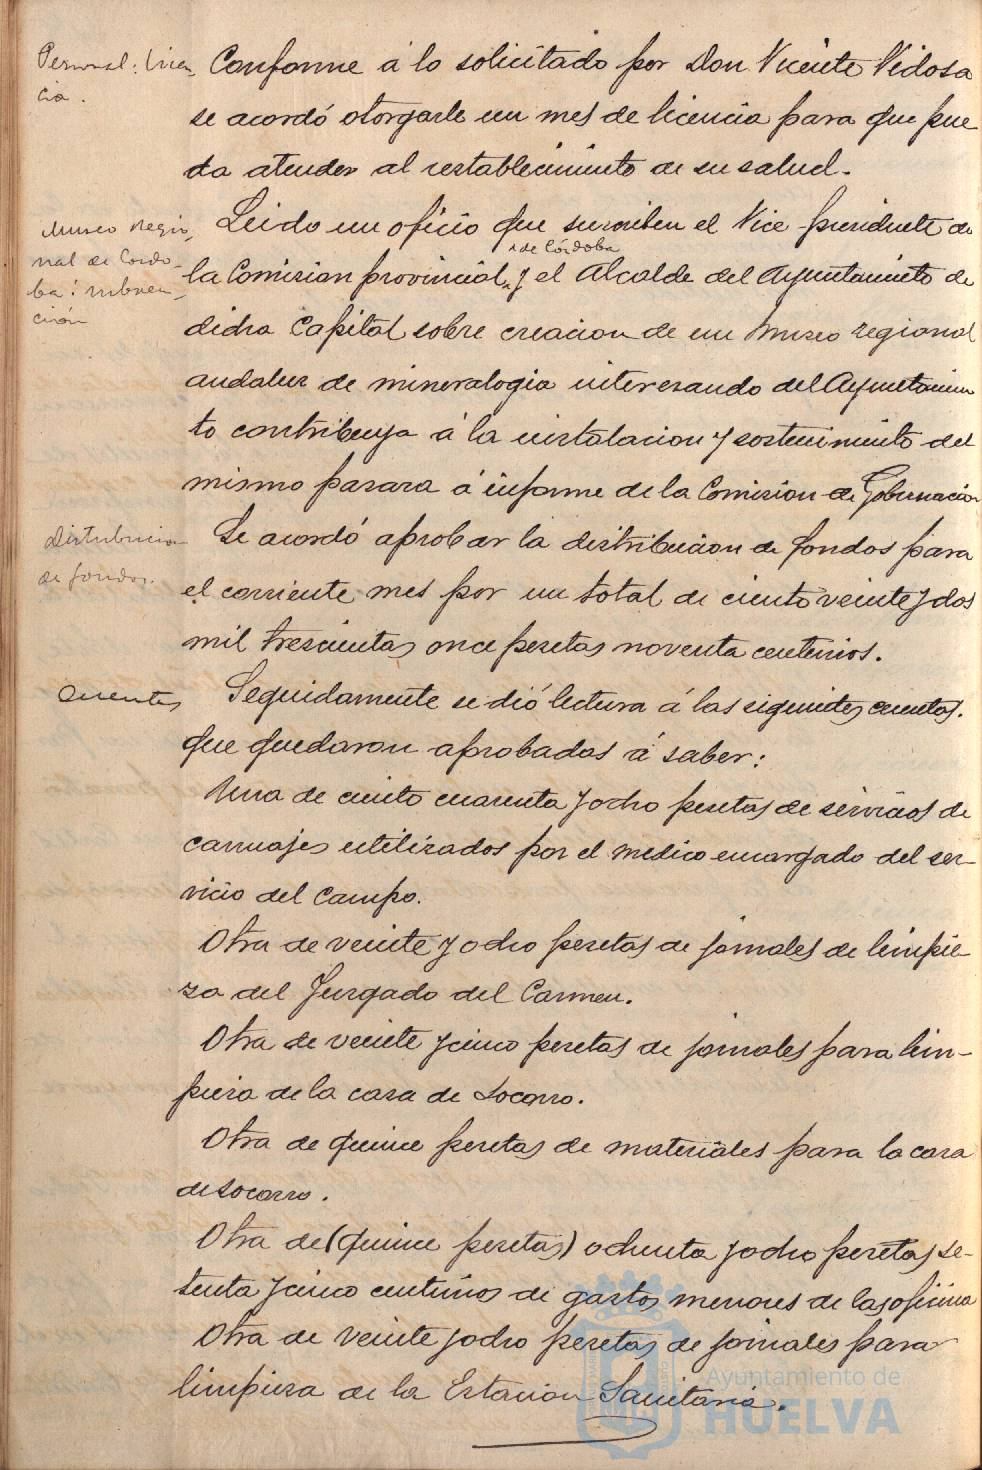 Personal: licen
cia.
Conforme á lo solicitado por Don Vicente Vidosa
se acordó otorgarle un mes de licencia para que pue
da atender al restablecimiento de su salud.
Museo regio
nal de Cordo-
ba: subven-
ción
Leido un oficio que suscriben el Vice presidente de
la Comision provincial de Córdoba y el Alcalde del Ayuntamiento de
dicha Capital sobre creacion de un Museo regional
andaluz de mineralogia interesando del Ayuntamien
to contribuya á la instalacion y sostenimiento del
mismo pasara á informe de la Comision de Gobernación
Distribucion
de fondos.
Se acordó aprobar la distribucion de fondos para
el corriente mes por un total de ciento veinte y dos
mil trescientas once pesetas noventa centimos.
Cuentas
Seguidamente se dió lectura á las siguientes cuentas.
que quedaron aprobadas á saber:
Una de ciento cuarenta y ocho pesetas de servicios de
carruajes utilizados por el medico encargado del ser-
vicio del Campo.
Otra de veinte y ocho pesetas de jornales de limpie-
za del Juzgado del Carmen.
Otra de veinte y cinco pesetas de jornales para lim-
pieza de la casa de Socorro.
Otra de quince pesetas de materiales para la casa
de socorro.
Otra de (quince pesetas) ochenta y ocho pesetas se-
tenta y cinco centimos de gastos menores de las oficina
Otra de veinte y ocho pesetas de jornales para
limpieza de la Estacion Sanitaria.
Ayuntamiento de
HUELVA